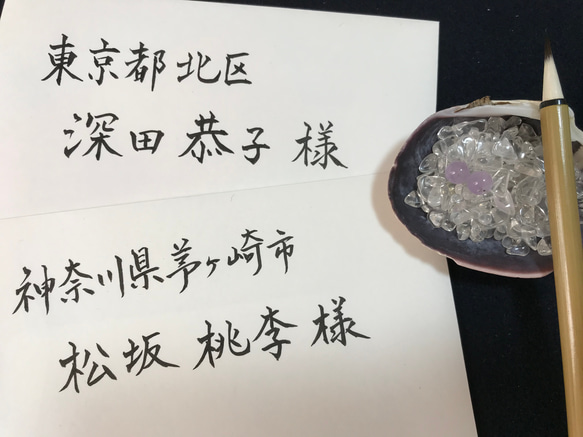 東京都北区
深田恭子様
神奈川県茅ヶ崎市
松坂桃李様